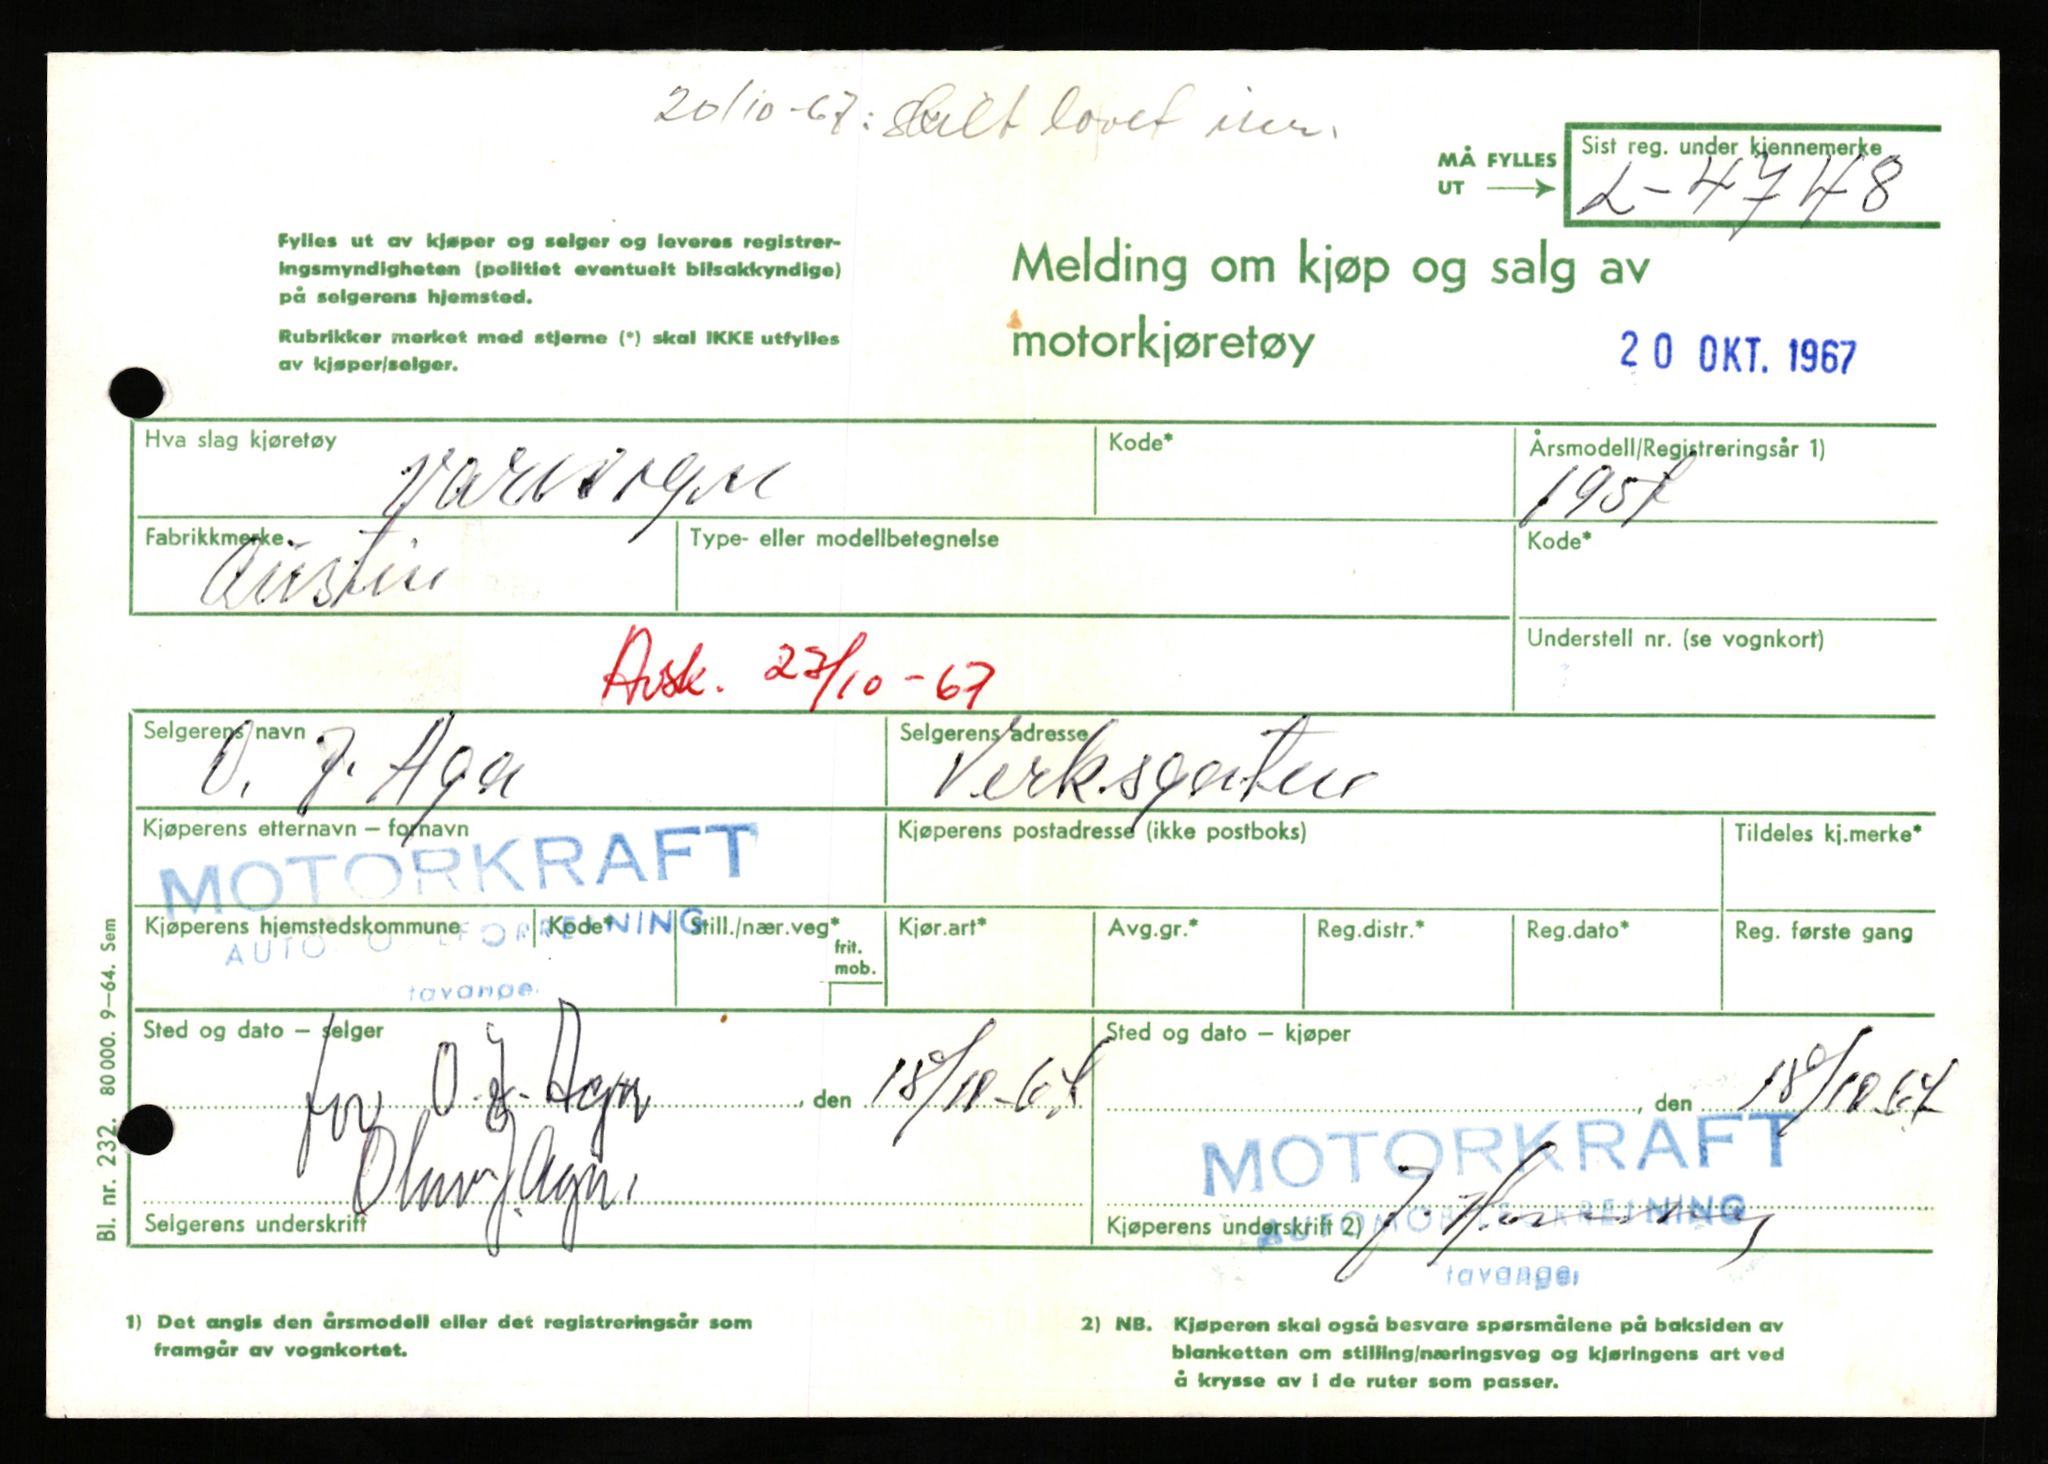 20/10-67: skilt lovet inn.
MÅ FYLLES UT
Sist reg. under kjennemerke
L-4748
Fylles ut av kjøper og selger og leveres registrer-
ingsmyndigheten (politiet eventuelt bilsakkyndige)
på selgerens hjemsted.
Rubrikker merket med stjerne (*) skal IKKE utfylles
av kjøper/selger.
Melding om kjøp og salg av
motorkjøretøy
20 OKT. 1967
Hva slag kjøretøy
varevogn
Kode*
Årsmodell/Registreringsår 1)
1957
Fabrikkmerke
Austin
Type- eller modellbetegnelse
Kode*
Understell nr. (se vognkort)
Avsk. 27/10-67
Selgerens navn
O. J. Aga
Selgerens adresse
Verksgaten
Kjøperens etternavn – fornavn
MOTORKRAFT
Kjøperens postadresse (ikke postboks)
Tildeles kj.merke*
Kjøperens hjemstedskommune
Kode*
Still./nær.veg*
frit.
mob.
Kjør.art*
Avg.gr.*
Reg.distr.*
Reg.dato*
Reg. første gang
tavange
Sted og dato – selger
for O. J. Aga , den 18/10-67
Olav J. Aga.
Selgerens underskrift
Sted og dato – kjøper
, den 18/10 67
MOTORKRAFT
Kjøperens underskrift 2)
tavange
Bl. nr. 232. 80 000. 9–64. Sem
1) Det angis den årsmodell eller det registreringsår som
framgår av vognkortet.
2) NB. Kjøperen skal også besvare spørsmålene på baksiden av
blanketten om stilling/næringsveg og kjøringens art ved
å krysse av i de ruter som passer.